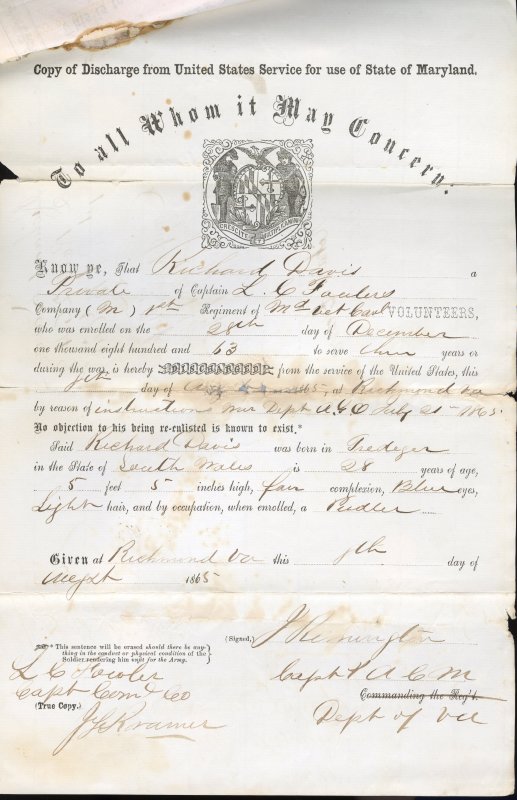 Copy of Discharge from United States Service for use of State of Maryland.
To all Whom it May Concern:
CRESCITE ET MULTIPLICAMINI
Know ye, That Richard Davis a
Private of Captain L. C. Fowlers
Company (M) 1st Regiment of Md Vet Cavl VOLUNTEERS,
who was enrolled on the 28th day of December
one thousand eight hundred and 63 to serve three years or
during the war, is hereby DISCHARGED from the service of the United States, this
8th day of August 1865, at Richmond Va
by reason of instructions War Dept A.G.O July 21st 1865.
No objection to his being re-enlisted is known to exist.*
Said Richard Davis was born in Tredeger
in the State of South Wales is 28 years of age,
5 feet 5 inches high, fair complexion, Blue eyes,
Light hair, and by occupation, when enrolled, a
Given at Richmond Va this 8th day of
Augst 1865
* This sentence will be erased should there be any-
thing in the conduct or physical condition of the
Soldier rendering him unfit for the Army.
(Signed,) J Remington
Capt & A C M
Commanding the Reg't.
Dept of Va
L C Fowler
Capt Comd Co
(True Copy.)
J Kramer